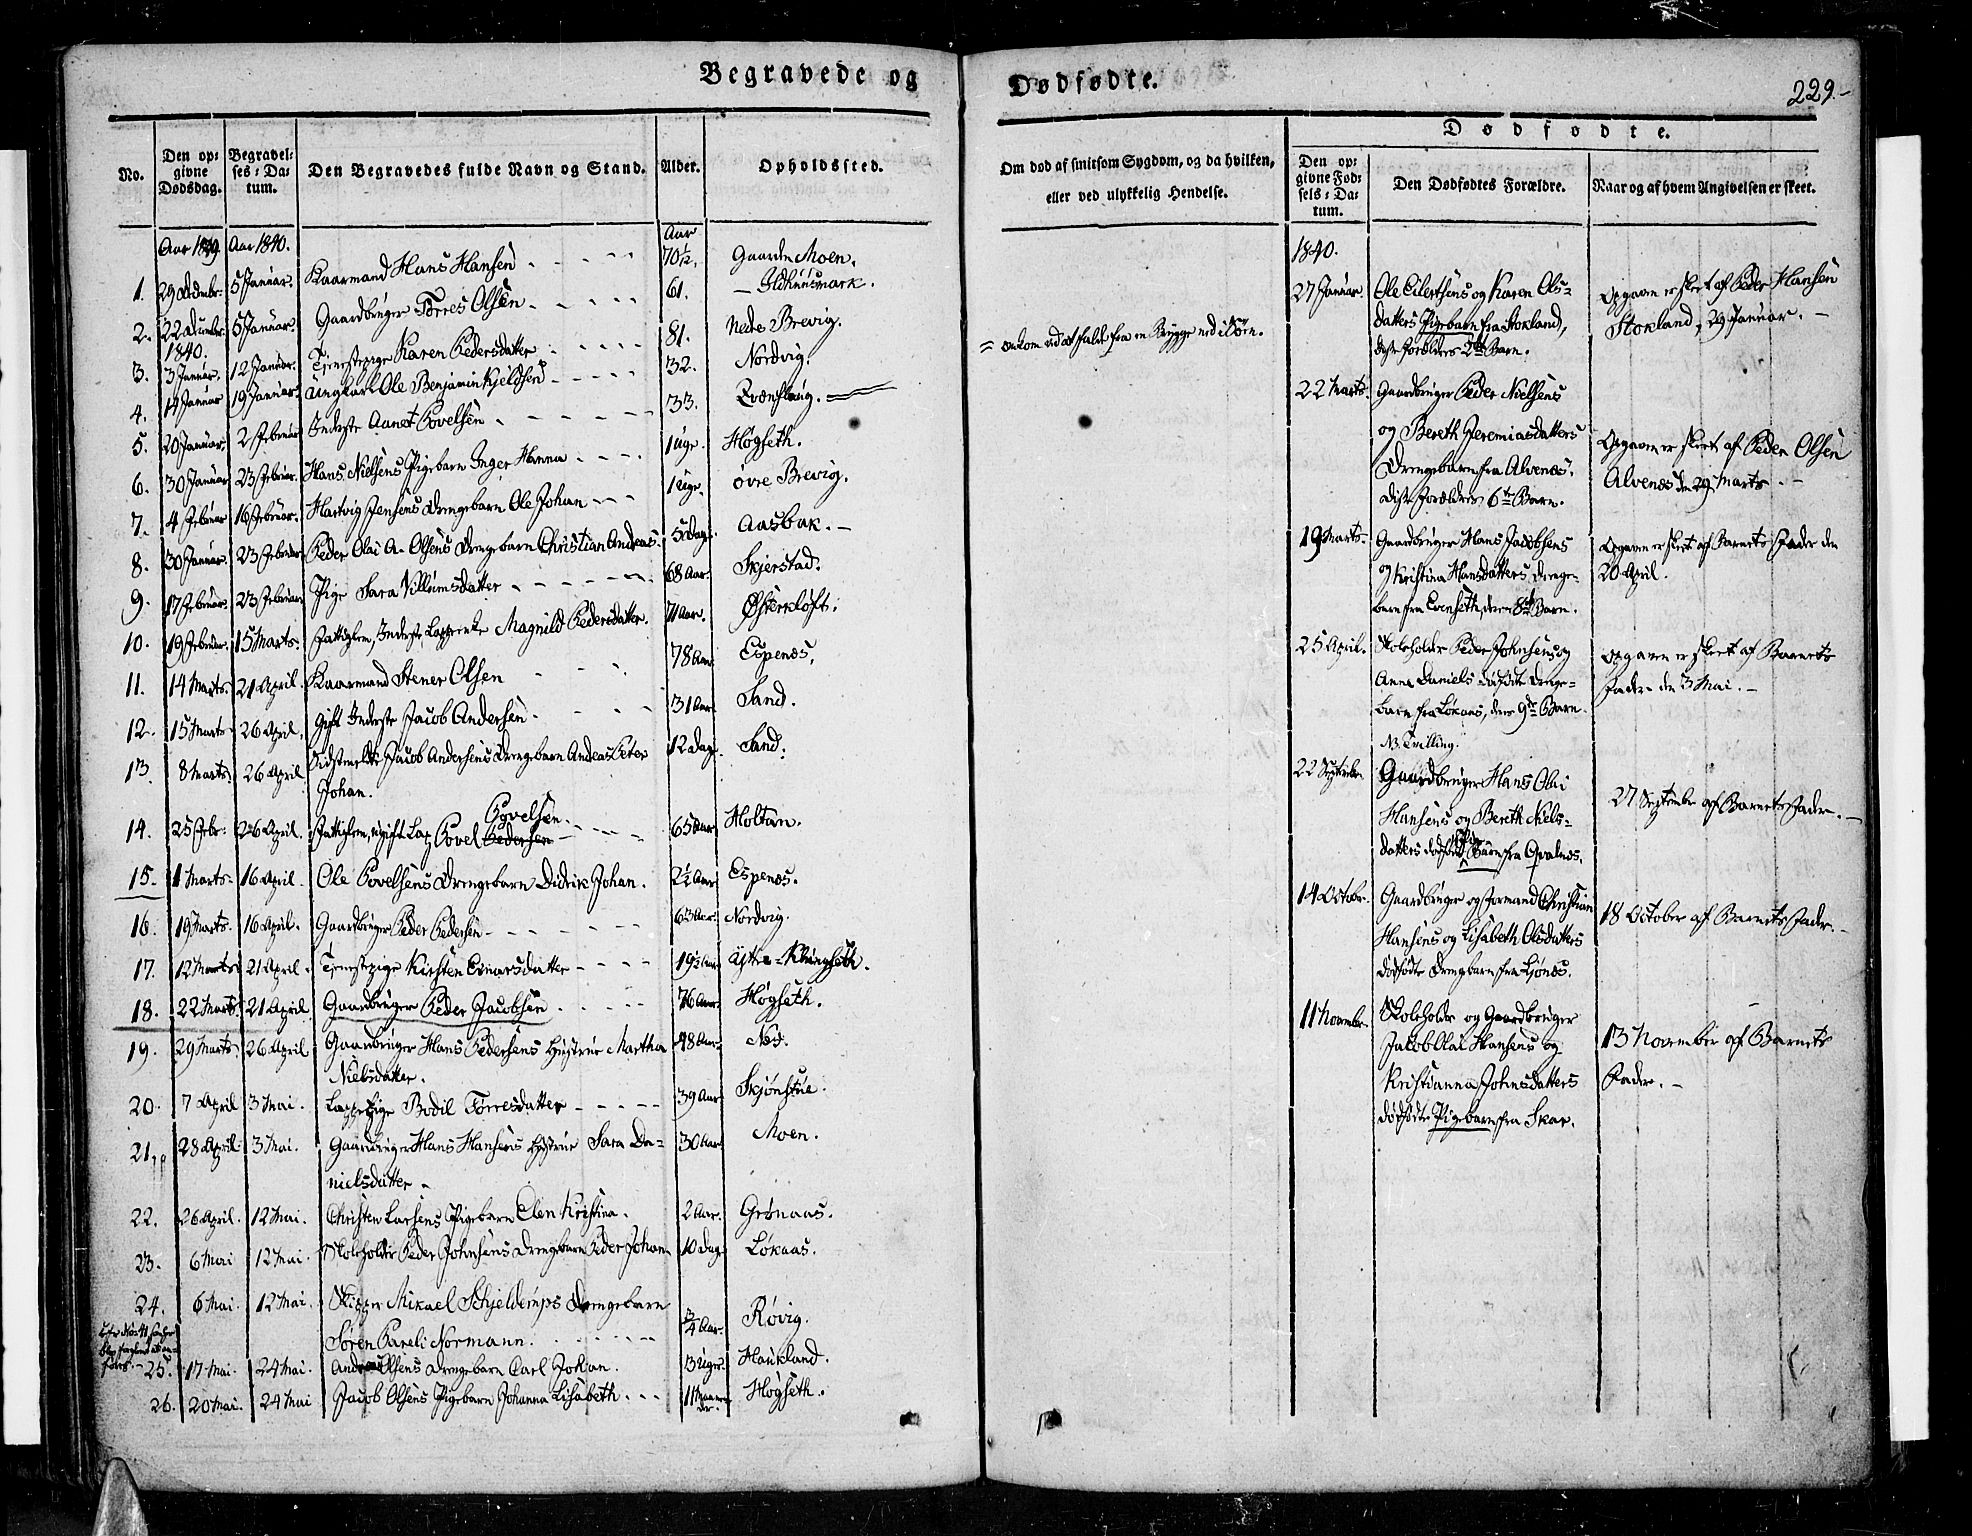 Begravede og
Dødfødte.
229.-
No.
Den opgivne Dødsdag.
Begravelses-Datum.
Den Begravedes fulde Navn og Stand.
Alder.
Opholdssted.
Om død af smitsom Sygdom, og da hvilken,
eller ved ulykkelig Hendelse.
Dødfødte.
Den opgivne Fødsels-Datum.
Den Dødfødtes Forældre.
Naar og af hvem Angivelsen er skeet.
Aar 1839. Aar 1840. Aar
1. 29 Decembr. 5 Januar. Kaarmand Hans Hansen 70 1/2. Gaarden Moen.
2. 22 December 5 Januar. Gaardbruger Tørres Olsen 61. - Ildhuusmark.
1840.
3. 3 Januar. 12 Januar. Tjenestepige Karen Pedersdatter 81. Nedre Brevig.
4. 14 Januar 19 Januar. Ungkarl Ole Benjamin Kjeldsen 32. Nordvig.
5. 20 Januar. 2 Februar Inderste Aanet Povelsen 33. Qvænflaug.
6. 30 Januar 23 Februar. Hans Nielsens Pigebarn Inger Hanna 1 Uge. Høgseth.
7. 4 Februar 16 Februar. Hartvig Jensens Drengebarn Ole Johan 1 Uge. øvre Brevig.
8. 30 Januar. 23 Februar Peder Olai A. Olsens Drengebarn Christian Andreas 5 Dage. Aasbak.
9. 17 Februar. 23 Februar Pige Sara Villumsdatter 68 Aar. Skjerstad.
10. 19 Februar. 15 Marts. Fattiglem, Inderste, Lappenke Magnild Pedersdatter 71 Aar. Østerkløft.
11. 14 Marts. 21 April Kaarmand Stener Olsen 78 Aar. Espenæs.
12. 15 Marts 26 April. Gift Inderste Jacob Andersen 31 Aar. Sand.
13. 8 Marts. 26 April Sidstmeldte Jacob Andersens Drengebarn Andreas Peter
Johan. 12 Dage. Sand.
14. 25 Febr. 26 April. Fattiglem, ugift Lap Povel Pedersen Povelsen 65 Aar Holtan.
15. 1 Marts 16 April. Ole Povelsens Drengebarn Didrik Johan. 2 1/2 Aar Espenæs.
16. 19 Marts. 16 April. Gaardbruger Peder Pedersen 63 Aar. Nordvig.
17. 12 Marts 21 April. Tjenestepige Kirsten Ennarsdatter 19 1/2 Aar Yttre-Klungseth.
18. 22 Marts. 21 April. Gaardbruger Peder Jacobsen 76 Aar. Høgseth.
19. 29 Marts 26 April Gaardbruger Hans Pedersens Hustrue Martha
Nielsdatter. 48 Aar. Næs.
20. 7 April 3 Mai. Lappepige Bodil Tørresdatter 39 Aar Skjønstue.
21. 28 April 3 Mai. Gaardbruger Hans Hansens Hustrue Sara Da-
nielsdatter 30 Aar Moen.
22. 26 April. 12 Mai. Christen Larsens Pigebarn Elen Kristina. 2 Aar. Grønaas.
23. 6 Mai 12 Mai. Skoleholder Peder Johnsens Drengebarn Peder Johan 10 Dage Løkaas.
24. 6 Mai. 12 Mai. Skipper Mikael Schjeldrups Drengebarn
Søren Pareli Normann. 3/4 Aar. Røvig.
25. 17 Mai. 24 Mai. Andreas Olsens Drengebarn Carl Johan. 13 Uger. Haukland.
26. 20 Mai. 24 Mai Jacob Olsens Pigebarn Johanna Lisabeth 11 Maaneder. Høgseth.
= omkom ved at falde fra en Brygge ned i Søen.
1840.
27 Januar. Ole Eilertsens og Karen Ols-
datters Pigebarn fra Stokland,
disse Forældres 2det Barn.
Opgaven er skeet af Peder Hansen
Stokland, 29 Januar.
22 Marts. Gaardbruger Peder Nielsens
og Bereth Jeremiasdatters
Drengebarn fra Alvenæs,
disse Forældres 6te Barn.
Opgaven er skeet af Peder Olsen
Alvenæs den 29 Marts.
19 Marts. Gaardbruger Hans Jacobsens
og Kristina Hansdatters Drenge-
barn fra Evenseth, deres 8de Barn.
Opgaven er skeet af Barnets Fader den
20 April.
25 April. Skoleholder Peder Johnsens og
Anna Daniels dødfødte Drenge-
barn fra Løkaas, deres 9de Barn.
NB. Tvilling.
Opgaven er skeet af Barnets
Fader den 3 Mai.
22 September Gaardbruger Hans Olai
Hansens og Bereth Niels-
datters dødfødte Pige Barn fra Qvalnæs.
27 September af Barnets Fader.
14 October. Gaardbruger og Formand Christian
Hansens og Lisabeth Olsdatters
dødfødte Drengebarn fra Ljønæs.
18 October af Barnets Fader.
11 Novembr. Skoleholder og Gaardbruger
Jakob Olai Hansens og
Kristianna Johnsdatters
dødfødte Pigebarn fra Skar.
13 November af Barnets
Fader.